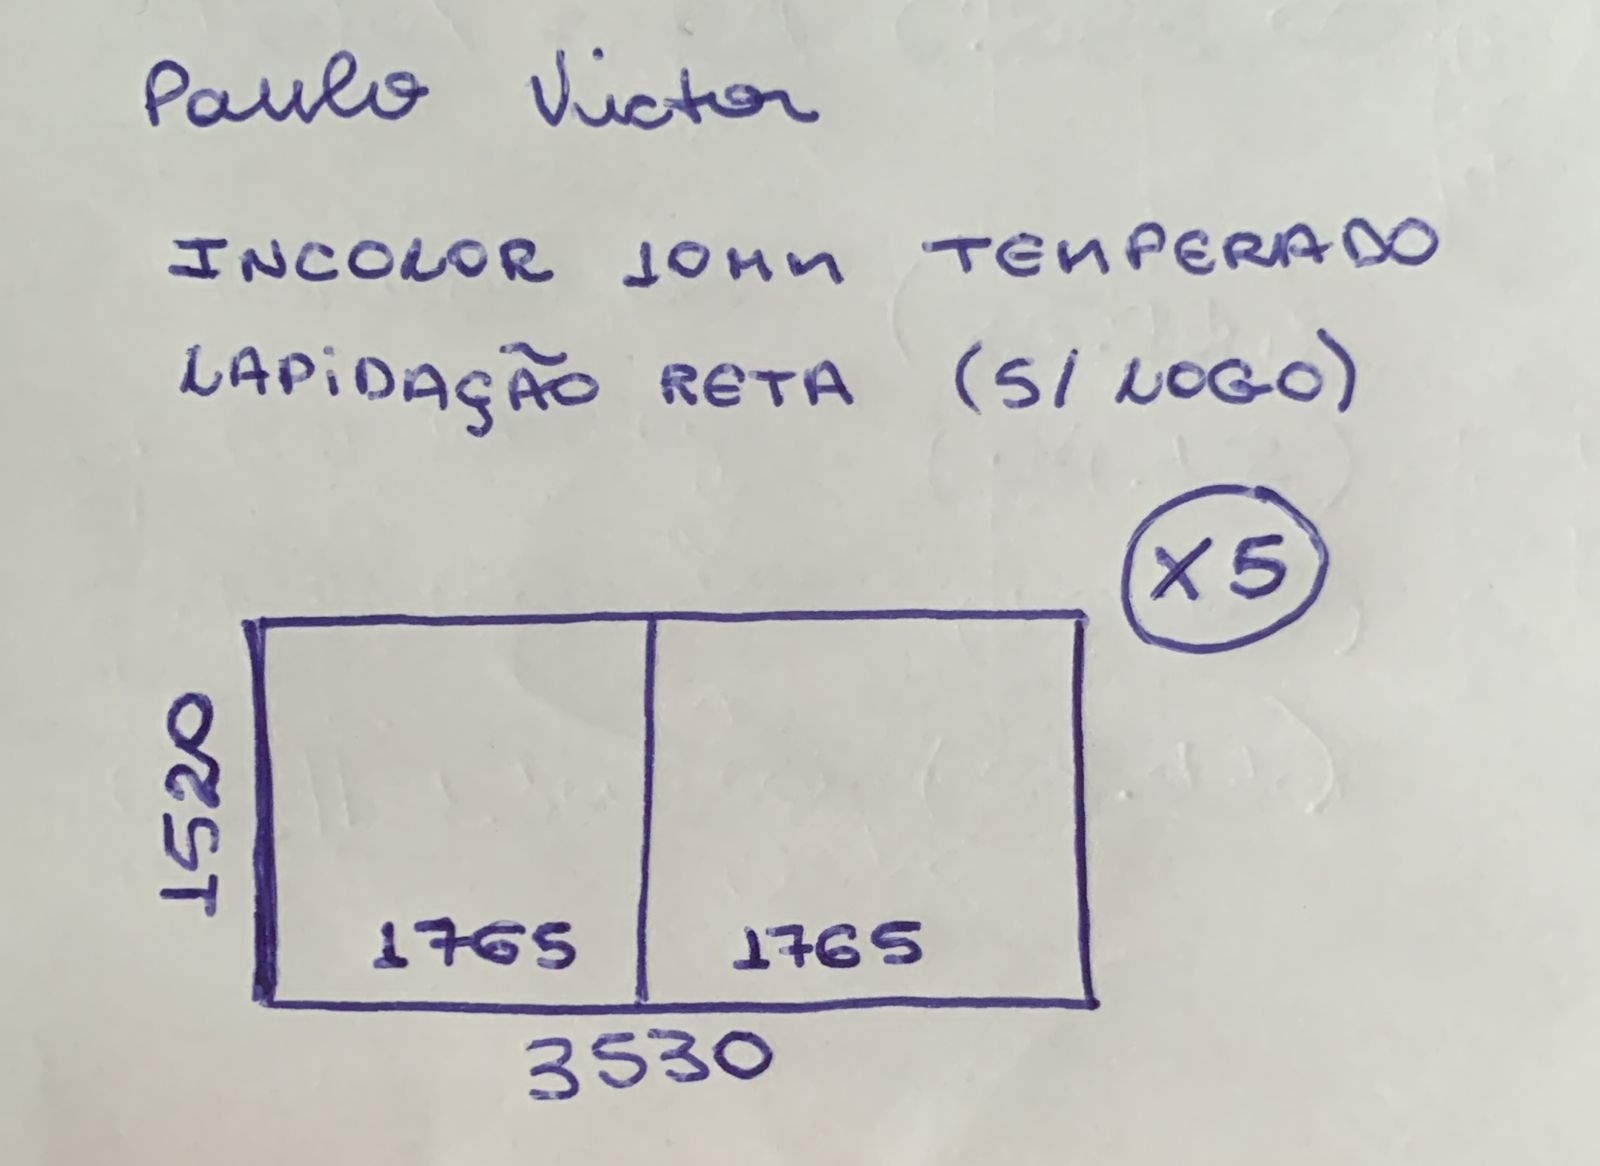 Paulo Victor
INCOLOR 10MM TEMPERADO
LAPiDAÇÃO RETA (S/ LOGO)
X5
1520
1765 1765
3530